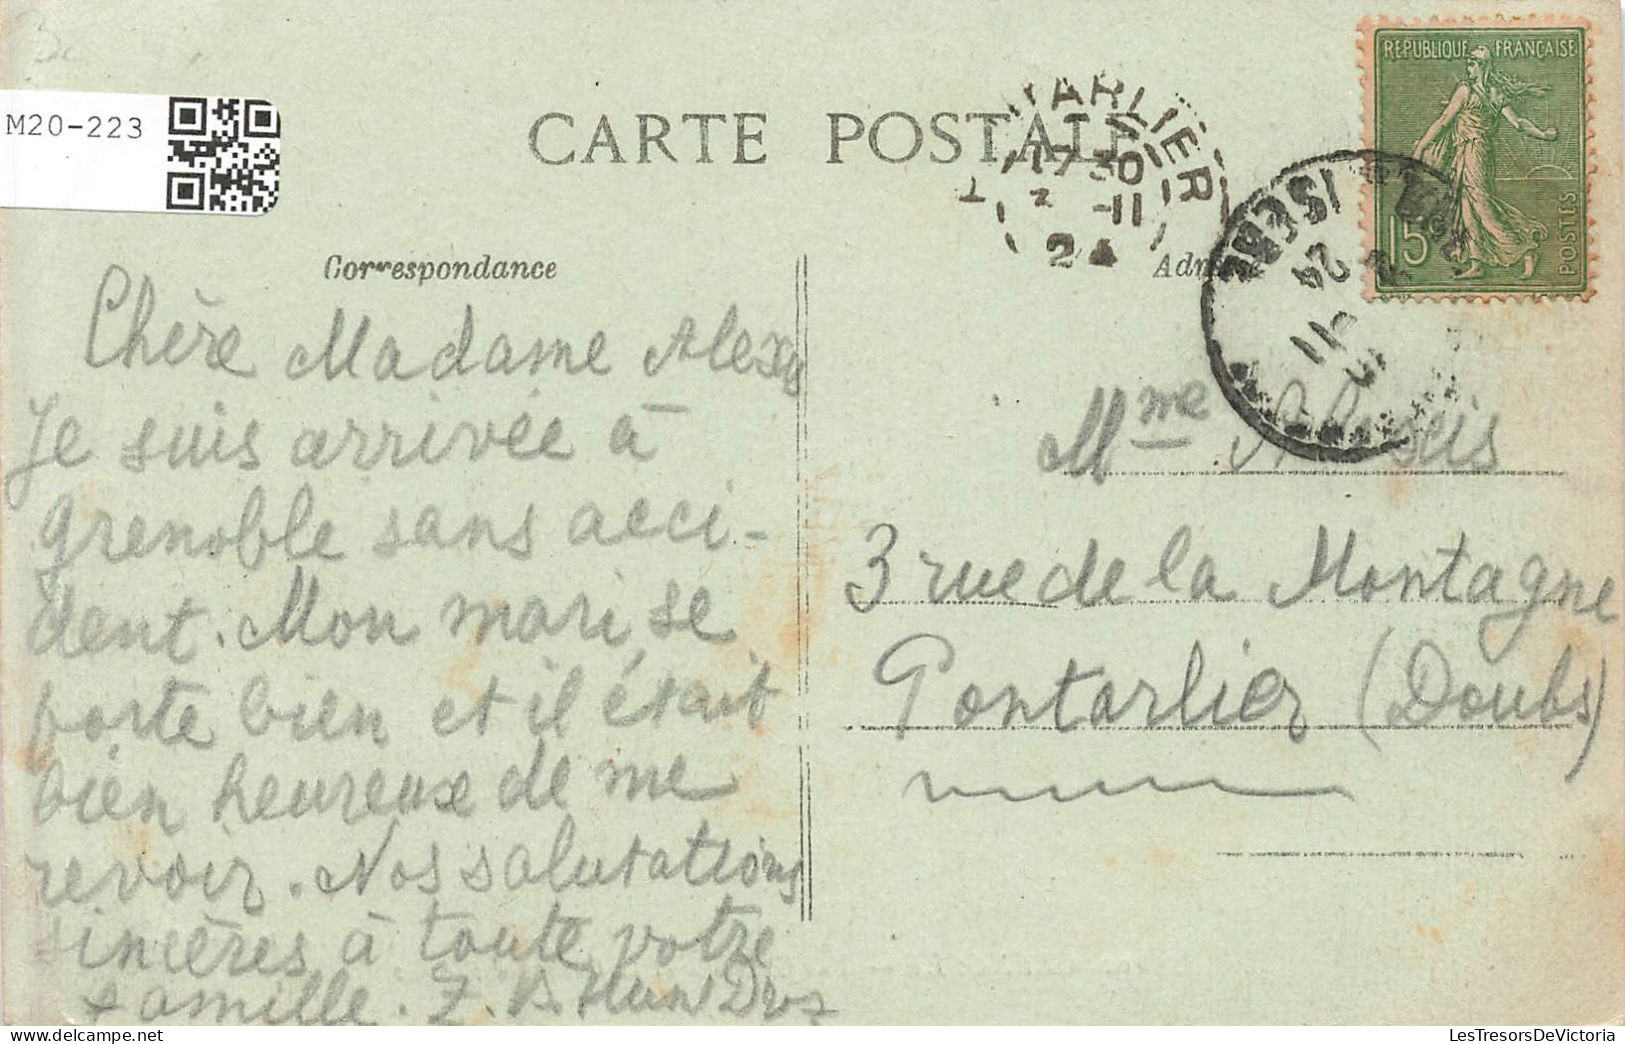 M20-223
CARTE POSTALE
RÉPUBLIQUE FRANÇAISE
15
POSTES
ARLIER
24
ISÈRE
24
11
Correspondance
Chère Madame Alexis
Je suis arrivée à
grenoble sans acci-
dent. Mon mari se
porte bien et il était
bien heureux de me
revoir. Nos salutations
sincères à toute votre
famille.
Mme Alexis
3 rue de la Montagne
Pontarlier (Doubs)
LesTresorsDeVictoria